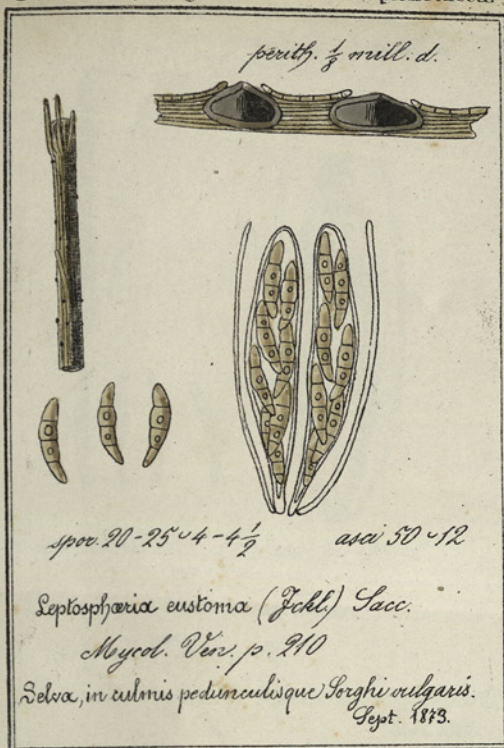 perith. ⅓ mill. d.
spor. 20-25 ᴗ 4-4½
asci 50 ᴗ 12
Leptosphæria eustoma (Fckl.) Sacc.
Mycol. Ven. p. 210
Selva, in culmis pedunculisque Sorghi vulgaris.
Sept. 1873.